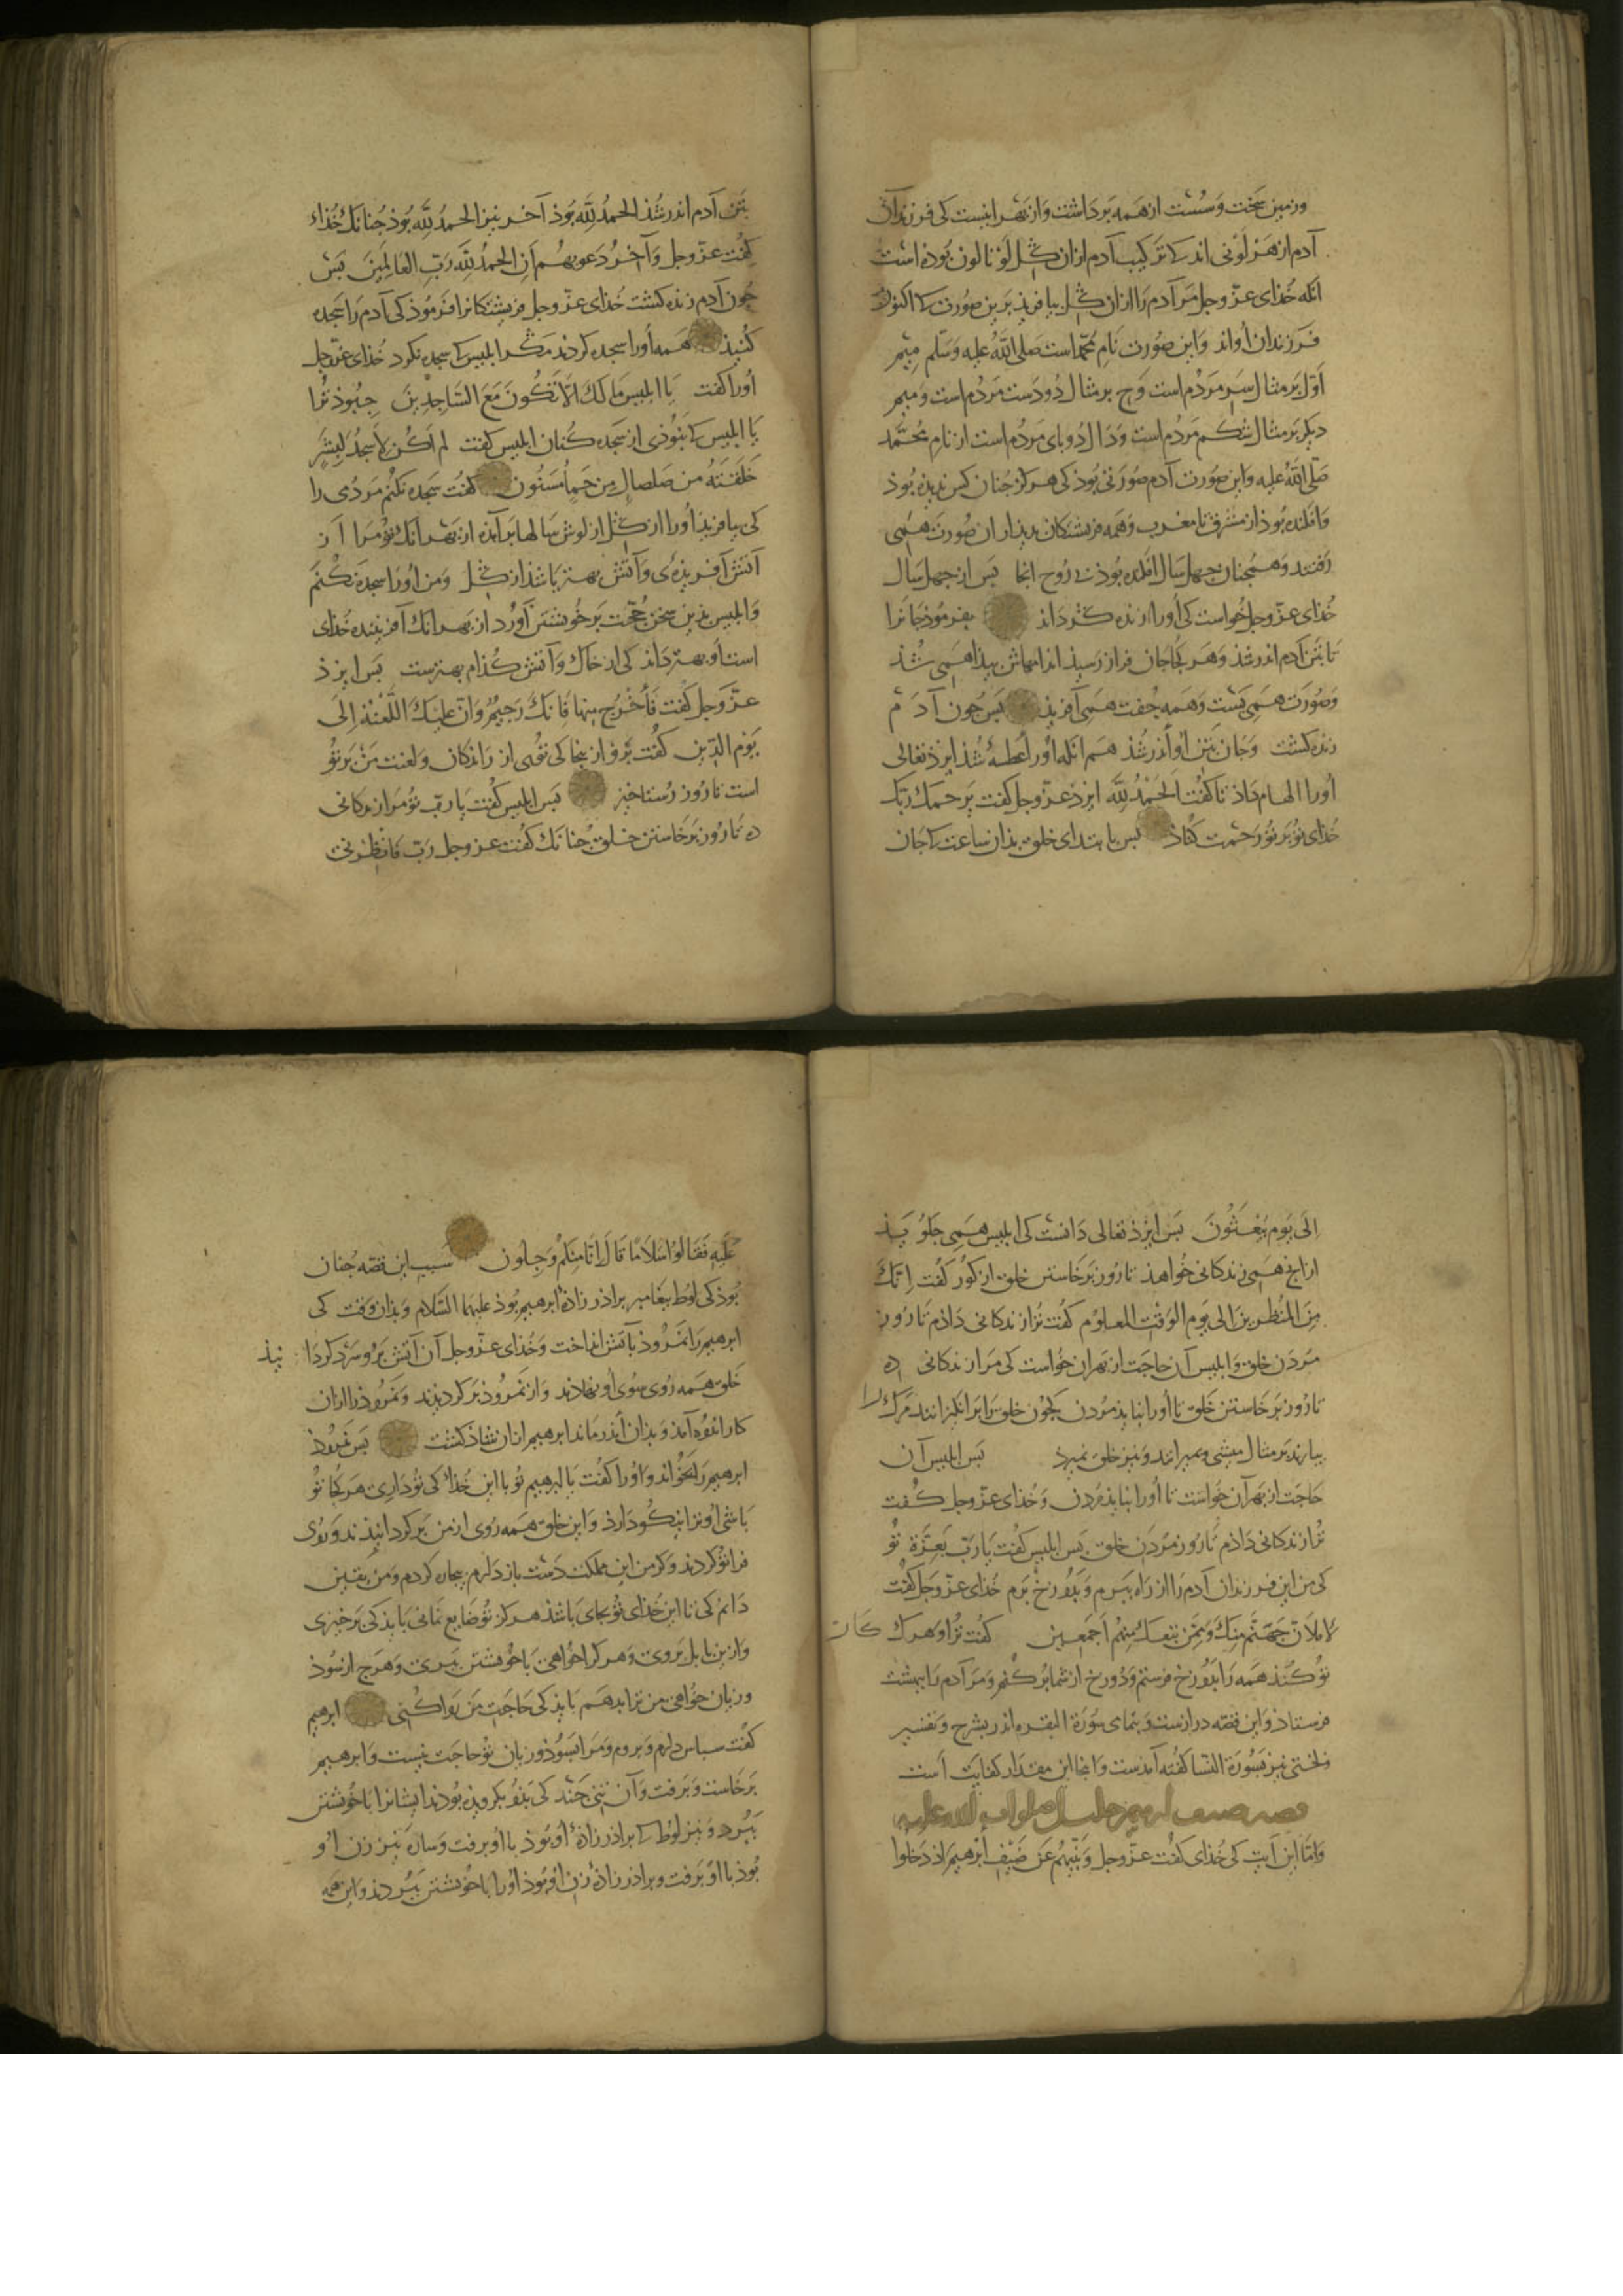 ورزمین سخت وسست از همه برداشت واز بهر اینست کی فرزندان
آدم از هر لونی اند کا ترکیب آدم ازان گل لونالون بوده است
آنکه خدای عز وجل مر آدم را ازان گل بیافرید برین صورت کا اکنون
فرزندان اواند واین صورت نام محمد است صلی الله علیه وسلم میم
اول بر مثال سر مردم است وح بر مثال دو دست مردم است ومیم
دیگر بر مثال شکم مردم است ودال دو بای مردم است از نام محمد
صلی الله علیه واین صورت آدم صورتی بوذ کی هرگز جنان کس ندیذه بوذ
وافکنده بوذ از مشرق تا مغرب وهمه فریشتکان بدیدار ان صورت همی
رفتند وهمجنان جهل سال افکنده بوذ بی روح انجا بس از جهل سال
خدای عز وجل خواست کی اورا زنده گرداند بفرموذ جانرا
تا بتن آدم اندر شذ وهر کجا جان فراز رسیذ اندامهاش بیذا همی شذ
وصورت همی بست وهمه جفت همی آفریذ بس جون آدم
زنده کشت وجان بتن او اندر شذ هم انکه اورا عطسه شذ ایزذ تعالی
اورا الهام داذ تا کفت الحمد لله ایزد عز وجل کفت یرحمک ربک
خدای تو بر تو رحمت کناذ بس بابتدای خلق بذان ساعت کا جان
بتن آدم اندر شذ الحمد لله بوذ آخر نیز الحمد لله بوذ جنانک خدای
کفت عز وجل وآخر دعویهم ان الحمد لله رب العالمین بس
جون آدم زنده کشت خدای عز وجل فریشتکانرا فرموذ کی آدم را سجده
کنیذ همه اورا سجده کردند مگر ابلیس کا سجده نکرد خدای عز وجل
اورا کفت یا ابلیس مالک الا تکون مع الساجدین جبوذ ترا
یا ابلیس کا نبوذی از سجده کنان ابلیس کفت لم اکن لاسجد لبشر
خلقته من صلصال من حما مسنون کفت سجده نکنم مردمی را
کی بیافریذ اورا از گل از لوش سالها برآمذه از بهر انک تو مرا از
آتش آفریذه‌ی وآتش بهتر باشذ از گل ومن اورا سجده نکنم
وابلیس بذین سخن حجت بر خویشتن آورد از بهر انک آفریننده خدای
است او بهتر داند کی از خاک وآتش کذام بهترست بس ایزذ
عز وجل کفت فاخرج منها فانک رجیم وان علیک اللعنة الی
یوم الدین کفت برو از ینجا کی توی از راندکان ولعنت من بر تو
است تا روز رستاخیز بس ابلیس کفت یا رب تو مرا زندکانی
ده تا روز برخاستن خلق جنانک کفت عز وجل رب فانظرنی
الی یوم یبعثون بس ایزذ تعالی دانست کی ابلیس همی جلویذ
ازانج همی زندکانی خواهذ تا روز برخاستن خلق از کور کفت انک
من المنظرین الی یوم الوقت المعلوم کفت ترا زندکانی داذم تا روز
مردن خلق وابلیس آن حاجت از بهر ان خواست کی مرا زندکانی ده
تا روز برخاستن خلق تا اورا نبایذ مردن کجون خلق را برانکیزانند مرک را
بیارند بر مثال میشی وبمیرانند ونیز خلق نمیرذ بس ابلیس آن
حاجت از بهر آن خواست تا اورا نبایذ مردن وخدای عز وجل کفت
ترا زندکانی داذم تا روز مردن خلق بس ابلیس کفت یا رب بعزة تو
کی من این فرزندان آدم را از راه ببرم وبدوزخ برم خدای عز وجل کفت
لاملان جهنم منک وممن تبعک منهم اجمعین کفت ترا وهرک کار
تو کنذ همه را بدوزخ فرستم ودوزخ از شما بر کنم ومر آدم را ببهشت
فرستاذ واین قصه درازست وبتمامی سورة البقره اندر بشرح وتفسیر
ولختی نیز بسورة النسا کفته آمدست واینجا این مقدار کفایت است
قصه ضیف ابرهیم خلیل صلوات الله علیه
واما این آیت کی خدای کفت عز وجل ونبئهم عن ضیف ابرهیم اذ دخلوا
علیه فقالوا سلاما قال انا منکم وجلون سبب این قصه جنان
بوذ کی لوط بیغامبر براذر زاذه ابرهیم بوذ علیهما السلام وبذان وقت کی
ابرهیم را نمروذ بآتش انداخت وخدای عز وجل آن آتش برو سرد کردانیذ
خلق همه روی سوی او نهادند واز نمروذ برکردیدند ونمروذ را ازان
کار اندوه آمذ وبذان اندر ماند ابرهیم ازان شاذ کشت بس نمروذ
ابرهیم را بخواند واورا کفت یا ابرهیم تو با این خذای کی تو داری هر کجا تو
باشی او ترا نیکو دارذ واین خلق همه روی از من برکردانیذند وروی
فرا تو کردند وکر من این مملکت دست باز دارم بیجان کردم ومن یقین
دانم کی تا این خدای تو بجای باشذ هرکز تو ضایع نمانی بایذ کی برخیزی
وازین بابل بروی وهر کرا خواهی با خویشتن ببری وهرج از سوذ
وزیان خواهی من ترا بدهم بایذ کی حاجت من روا کنی ابرهیم
کفت سباس دارم وبروم ومرا بسوذ وزیان تو حاجت نیست وابرهیم
برخاست وبرفت وآن تنی جند کی بذو بکرویذه بودند ایشانرا با خویشتن
ببرد ونیز لوط کا براذر زاذه او بوذ با او برفت وساره نیز زن او
بوذ با او برفت وبراذر زاذه زن او بوذ اورا با خویشتن ببردند واین همه